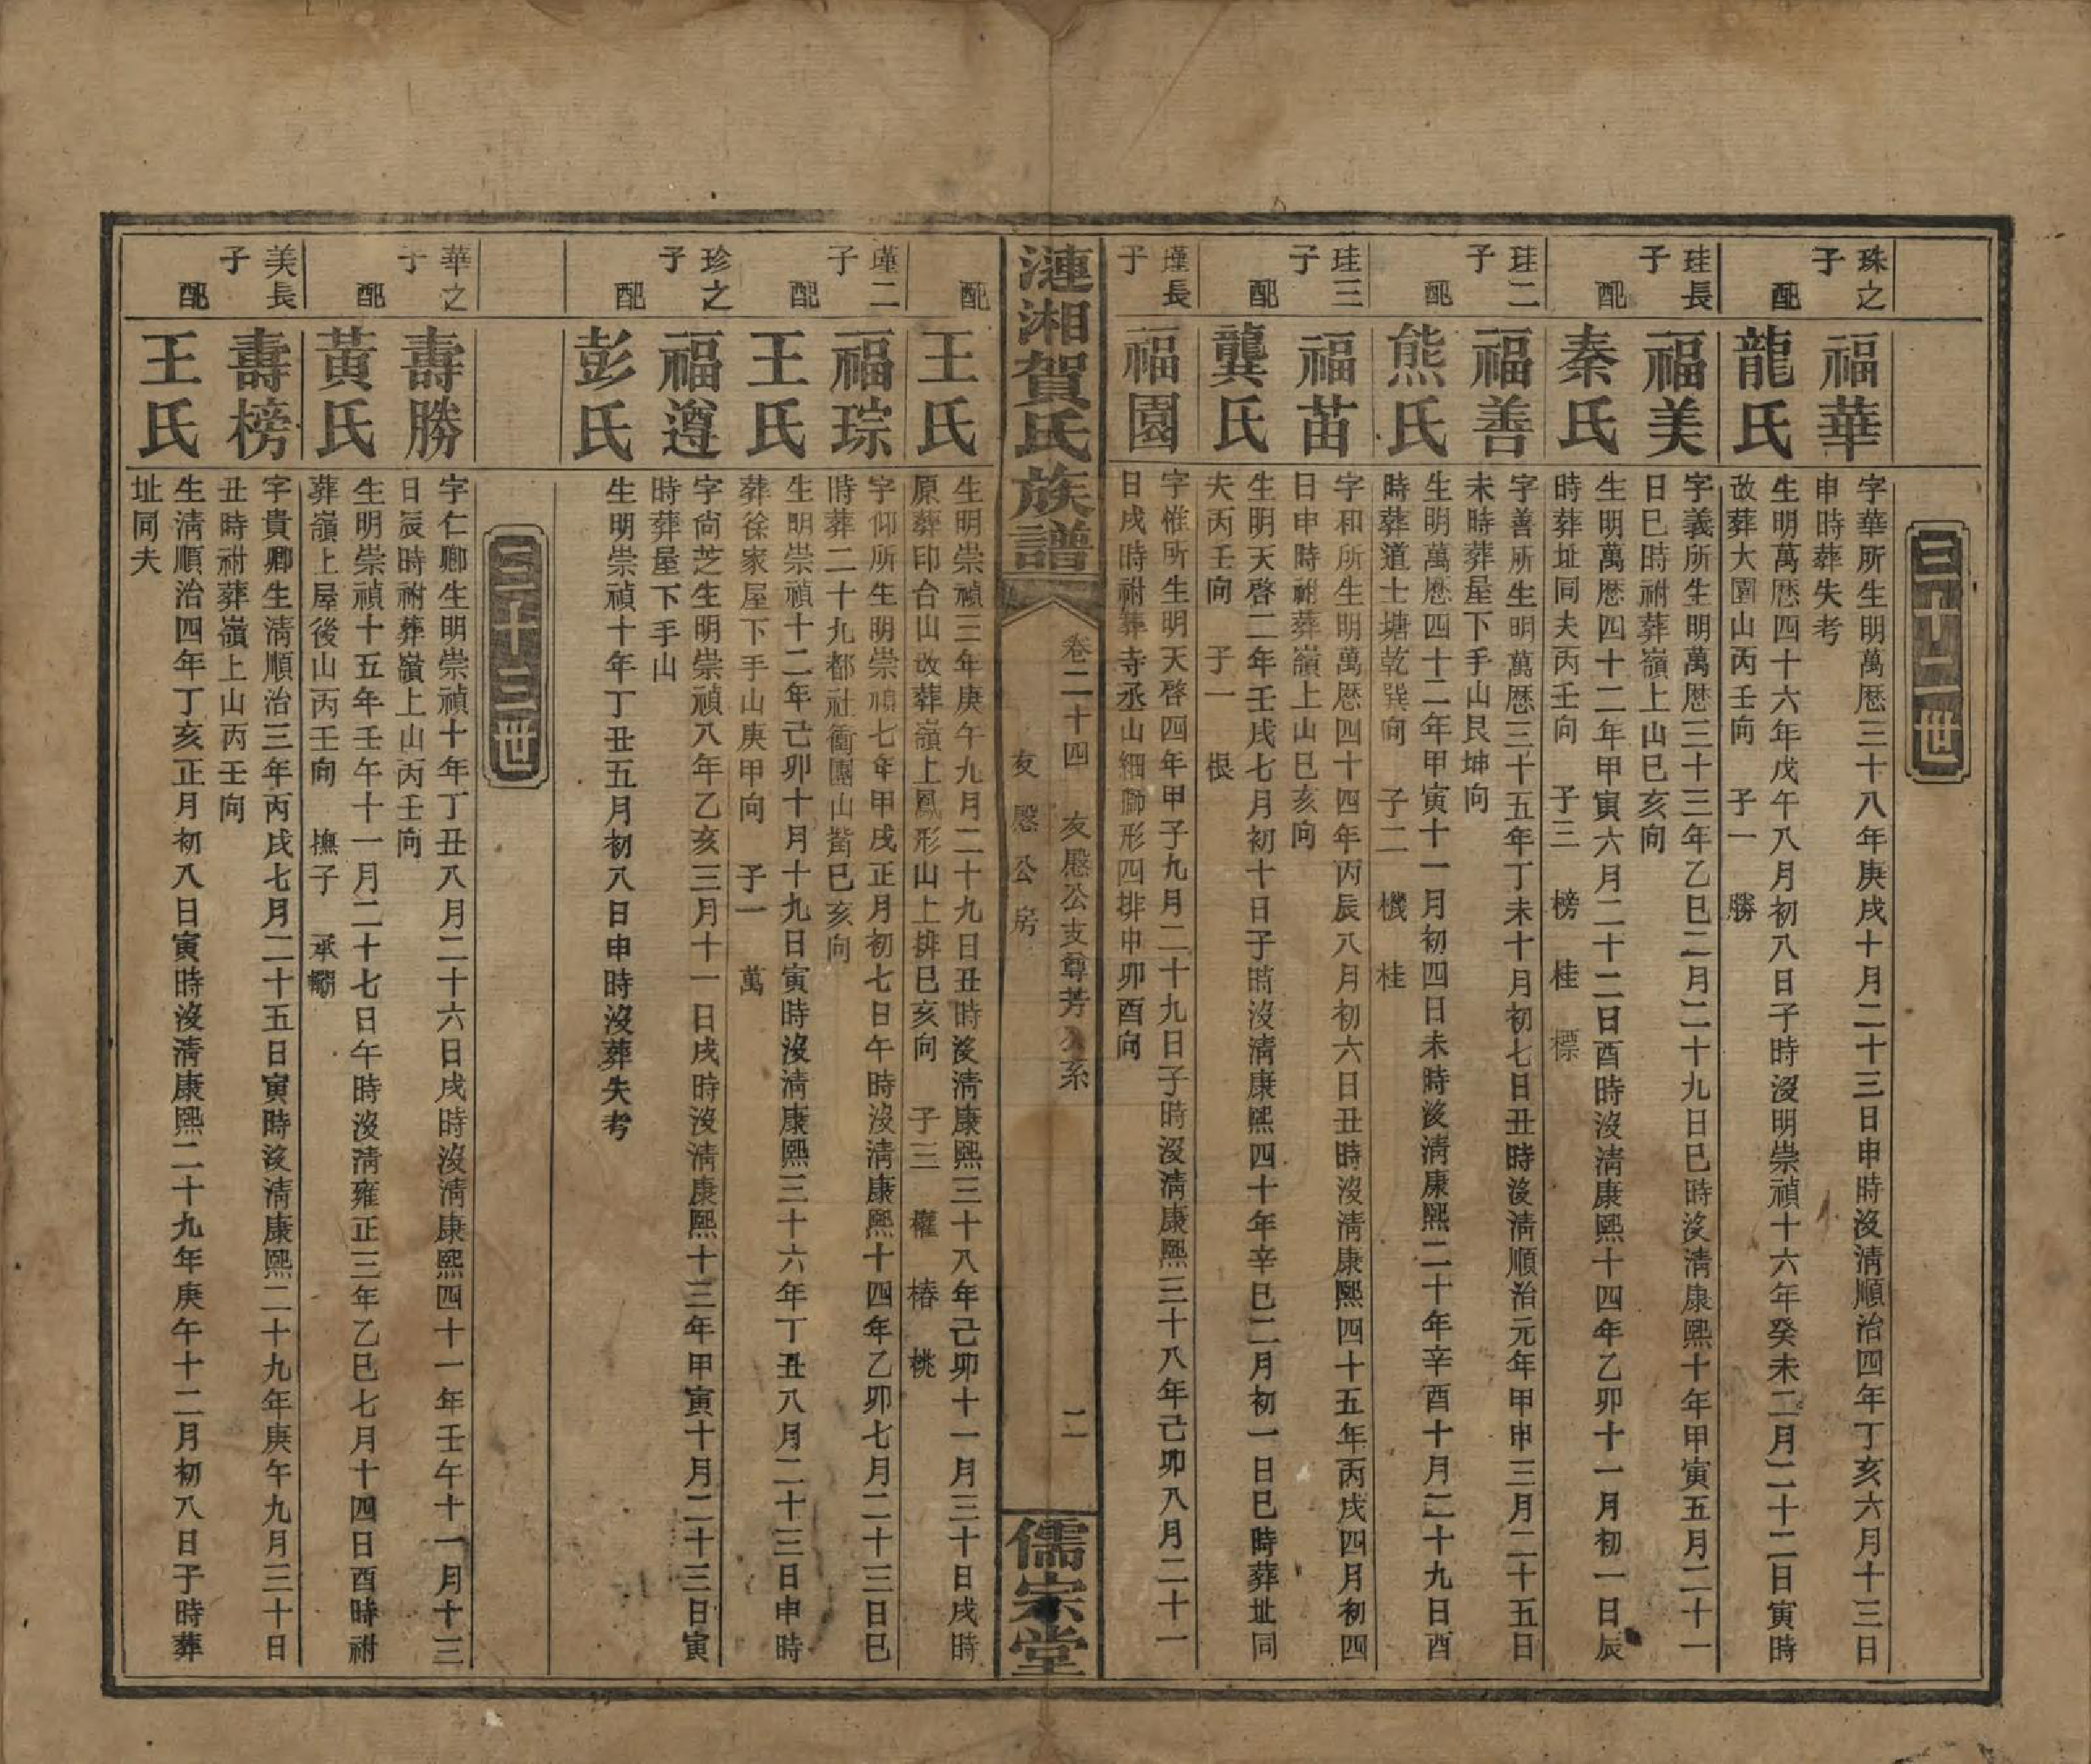 三十二世
珠之子
福華
字華所生明萬厯三十八年庚戌十月二十三日申時沒淸順治四年丁亥六月十三日
申時葬失考
配
龍氏
生明萬厯四十六年戊午八月初八日子時沒明崇禎十六年癸未二月二十二日寅時
改葬大園山丙壬向 子一 勝
珪長子
福美
字義所生明萬厯三十三年乙巳二月二十九日巳時沒淸康熙十年甲寅五月二十一
日巳時祔葬嶺上山巳亥向
配
秦氏
生明萬厯四十二年甲寅六月二十二日酉時沒淸康熙十四年乙卯十一月初一日辰
時葬址同夫丙壬向 子三 榜 桂 標
珪二子
福善
字善所生明萬厯三十五年丁未十月初七日丑時沒淸順治元年甲申三月二十五日
未時葬屋下手山艮坤向
配
熊氏
生明萬厯四十二年甲寅十一月初四日未時沒淸康熙二十年辛酉十月二十九日酉
時葬道士塘乾巽向 子二 機 桂
珪三子
福苗
字和所生明萬厯四十四年丙辰八月初六日丑時沒淸康熙四十五年丙戌四月初四
日申時祔葬嶺上山巳亥向
配
龔氏
生明天啓二年壬戌七月初十日子時沒淸康熙四十年辛巳二月初一日巳時葬址同
夫丙壬向 子一 根
瑾長子
福園
字惟所生明天啓四年甲子九月二十九日子時沒淸康熙三十八年己卯八月二十一
日戌時祔葬寺丞山細獅形四排申卯酉向
漣湘賀氏族譜
卷二十四 友愍公支尊芳公系
友愍公房
二
儒宗堂
配
王氏
生明崇禎三年庚午九月二十九日丑時沒淸康熙三十八年己卯十一月三十日戌時
原葬印台山改葬嶺上鳳形山上排巳亥向 子三 權 椿 桃
瑾二子
福琮
字仰所生明崇禎七年甲戌正月初七日午時沒淸康熙十四年乙卯七月二十三日巳
時葬二十九都社衝團山嘴巳亥向
配
王氏
生明崇禎十二年己卯十月十九日寅時沒淸康熙三十六年丁丑八月二十三日申時
葬徐家屋下手山庚甲向 子一 萬
珍之子
福遵
字尙芝生明崇禎八年乙亥三月十一日戌時沒淸康熙十三年甲寅十月二十三日寅
時葬屋下手山
配
彭氏
生明崇禎十年丁丑五月初八日申時沒葬失考
三十三世
華之子
壽勝
字仁卿生明崇禎十年丁丑八月二十六日戌時沒淸康熙四十一年壬午十一月十三
日辰時祔葬嶺上山丙壬向
配
黃氏
生明崇禎十五年壬午十一月二十七日午時沒淸雍正三年乙巳七月十四日酉時祔
葬嶺上屋後山丙壬向 撫子 承
美長子
壽榜
字貴卿生淸順治三年丙戌七月二十五日寅時沒淸康熙二十九年庚午九月三十日
丑時祔葬嶺上山丙壬向
配
王氏
生淸順治四年丁亥正月初八日寅時沒淸康熙二十九年庚午十二月初八日子時葬
址同夫